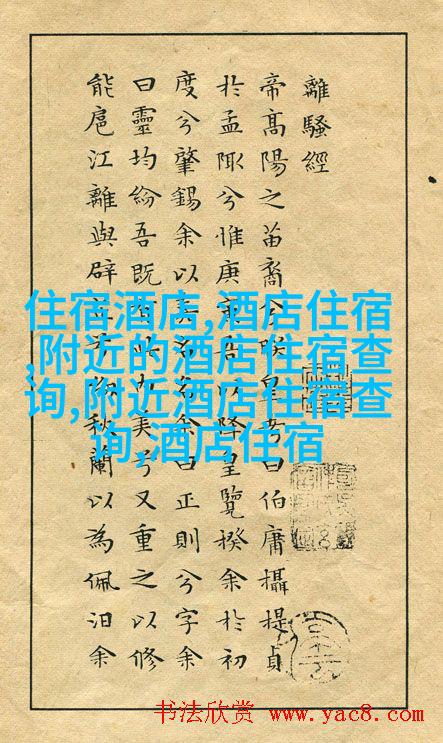 離騷經
帝高陽之苗裔兮朕皇考曰伯庸攝提貞
於孟陬兮惟庚寅吾以降皇覽揆余於初
度兮肇錫余以嘉名名余曰正則兮字余
曰靈均紛吾既有此內美兮又重之以修
能扈江離與辟芷兮紉秋蘭以為佩汩余
住宿酒店,酒店住宿
,附近的酒店住宿查
询,附近酒店住宿查
询,酒店住宿
书法欣赏 www.yac8.com